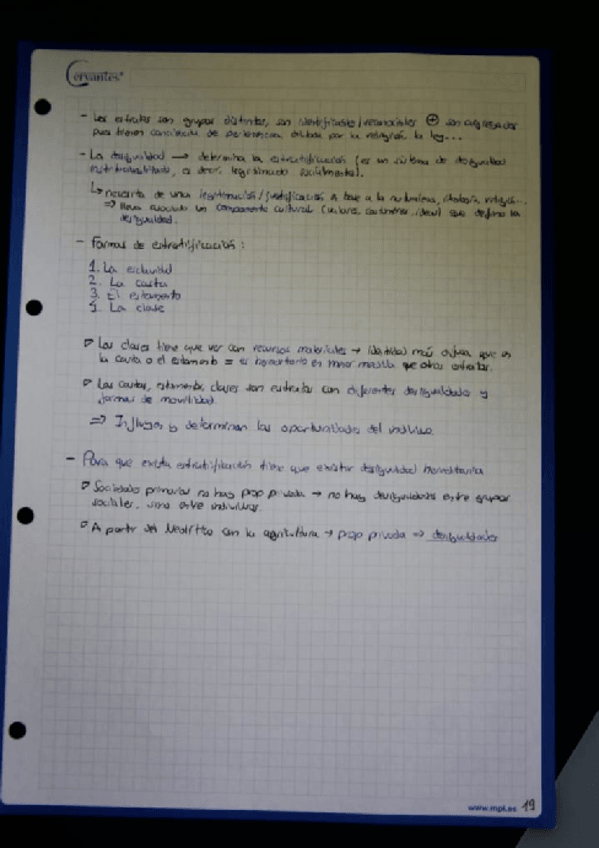 Cervantes
- Los estratos son grupos distintos, son identificables/reconocibles ⊕ son
pues tienen conciencia de pertenencia, por la religión, la ley...
- La desigualdad → determina la estratificación (es un sistema de desigualdad
, es decir, legitimado socialmente).
↳ necesita de una legitimación/justificación en base a la naturaleza, ideología, religión...
⇒ lleva asociado un componente cultural (valores, costumbres, ideas) que defiende la
desigualdad.
- Formas de estratificación:
1. La esclavitud
2. La casta
3. El estamento
4. La clase
Las clases tiene que ver con recursos materiales → identidad más difusa que en
la casta o el estamento = es hereditario en menor medida que otros estratos.
Las castas, estamentos, clases son estratos con diferentes desigualdades y
formas de movilidad.
⇒ Influyen y determinan las oportunidades del individuo.
- Para que exista estratificación tiene que existir desigualdad hereditaria
Sociedades primarias no hay prop privada → no hay desigualdades entre grupos
sociales, sino entre individuos.
A partir del Neolítico con la agricultura → prop privada ⇒ desigualdades
www.mpl.es 19